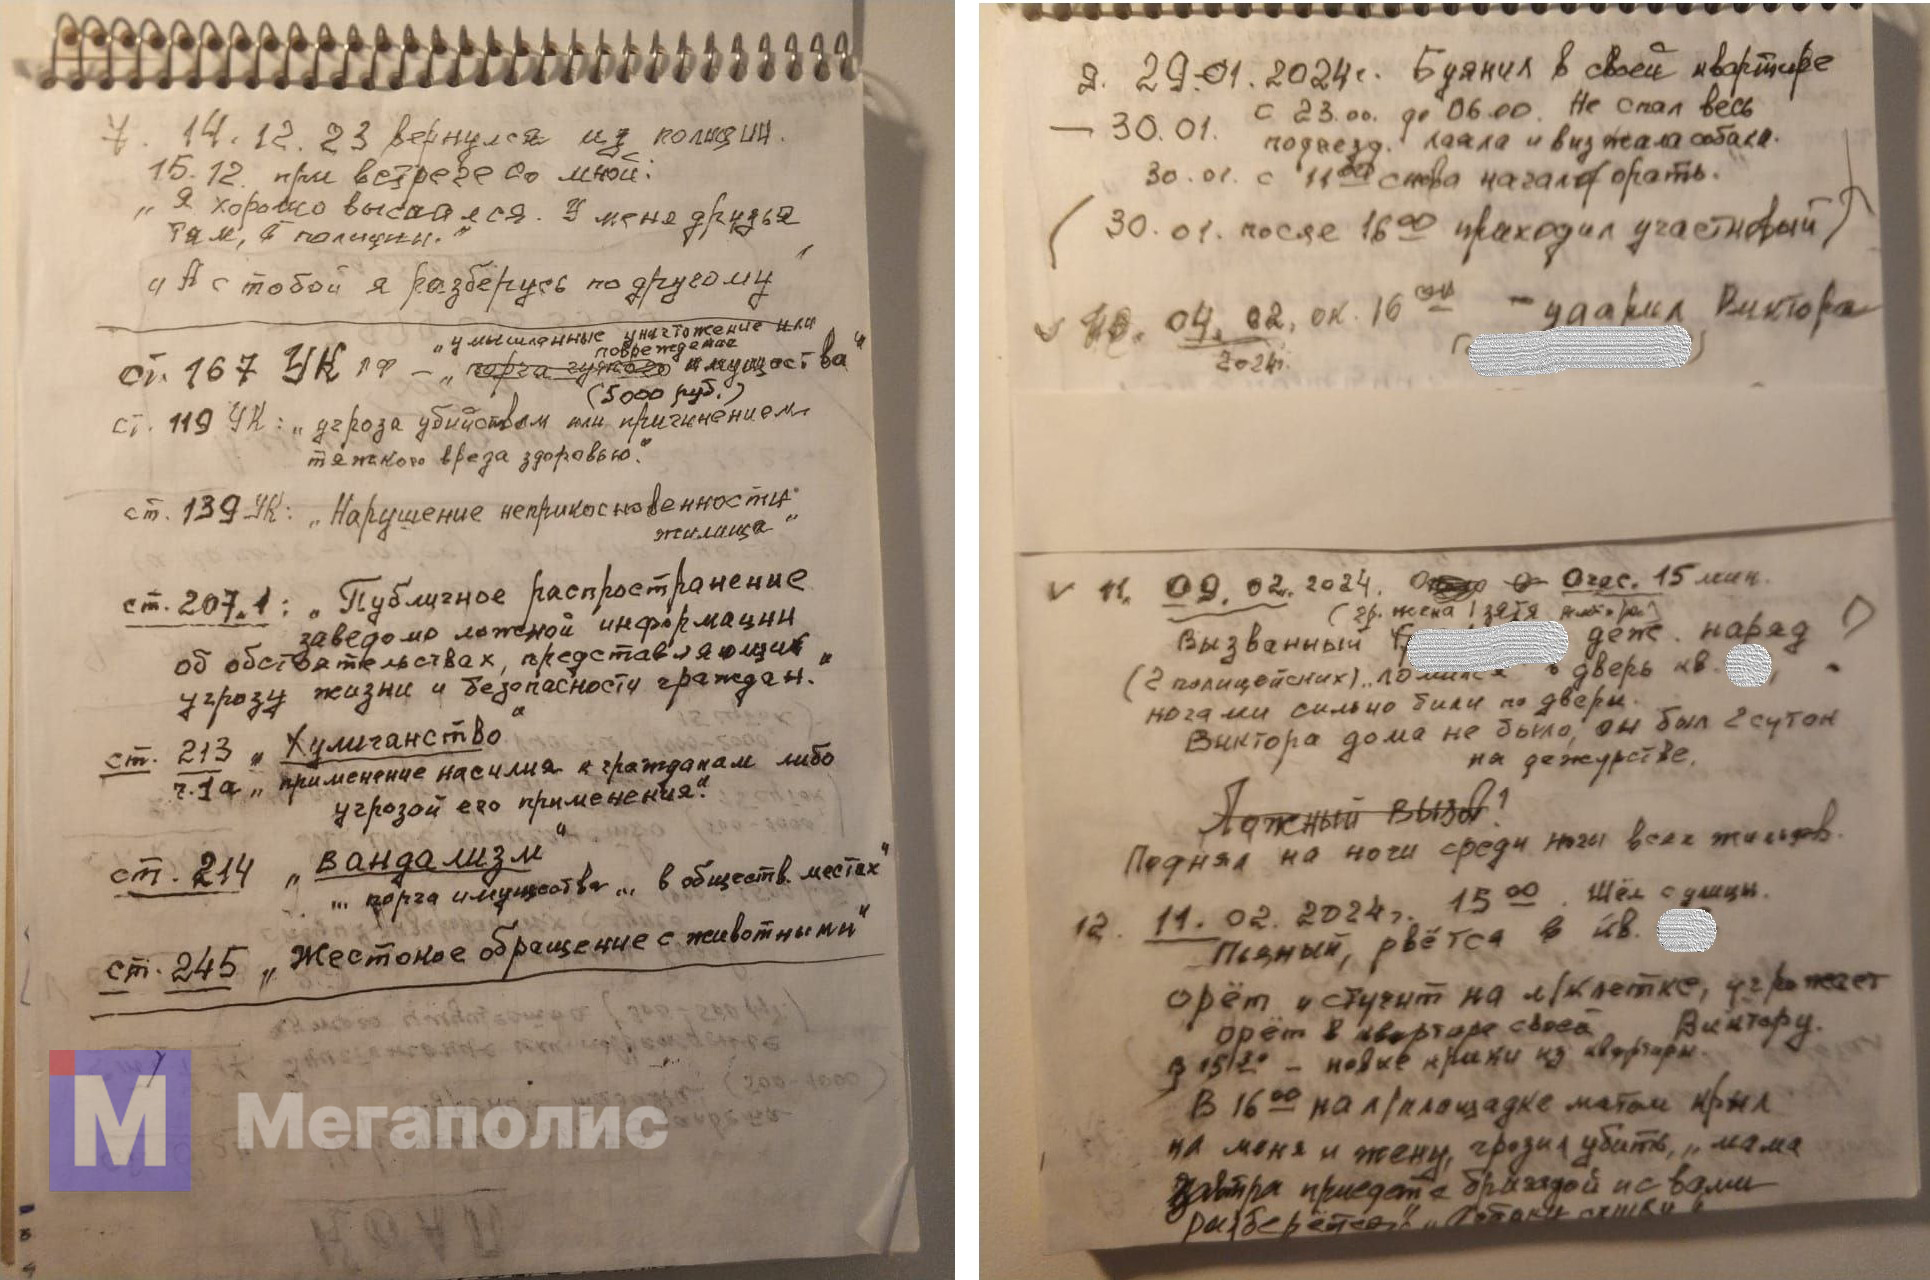 7. 14.12.23 вернулся из полиции.
15.12. при встрече со мной:
„Я хорошо выспался. У меня друзья
там, в полиции."
„А с тобой я разберусь по другому"
„умышленные уничтожение или
повреждение
ст. 167 УК РФ – „порча чужого имущества"
(5000 руб.)
ст. 119 УК: „угроза убийством или причинением
тяжкого вреза здоровью."
ст. 139 УК: „Нарушение неприкосновенности
жилища"
ст. 207.1: „Публичное распространение
заведомо ложной информации
об обстоятельствах, представляющих
угрозу жизни и безопасности граждан."
ст. 213 „Хулиганство"
ч.1а „применение насилия к гражданам либо
угрозой его применения."
ст. 214 „Вандализм"
„... порча имущества ... в обществ. местах"
ст. 245 „Жестокое обращение с животными"
М Мегаполис
9. 29.01.2024г. Буянил в своей квартире
– 30.01. с 23.00. до 06.00. Не спал весь
подъезд. лаяла и визжала собака.
30.01. с 11 00 снова начал орать.
(30.01. после 16 00 приходил участковый)
v 10. 04.02, ок. 16 00 – ударил Виктора
2024г.
v 11. 09.02.2024. 0 час. 15 мин.
(гр. жена!
Вызванный деж. наряд ?
(2 полицейских) „ломился в дверь кв.
ногами сильно били по двери.
Виктора дома не было, он был 2 суток
на дежурстве.
Ложный вызов!
Поднял на ноги среди ночи всех жильцов.
12. 11.02.2024г. 15 00. Шёл с улицы.
Пьяный, рвётся в кв.
орёт и стучит на л/клетке, угрожает
орёт в квартире своей Виктору.
– новые крики из квартиры.
В 16 00 на л/площадке матом крыл
на меня и жену, грозил убить, „мама
завтра приедет с бригадой и с вами
разберётся"